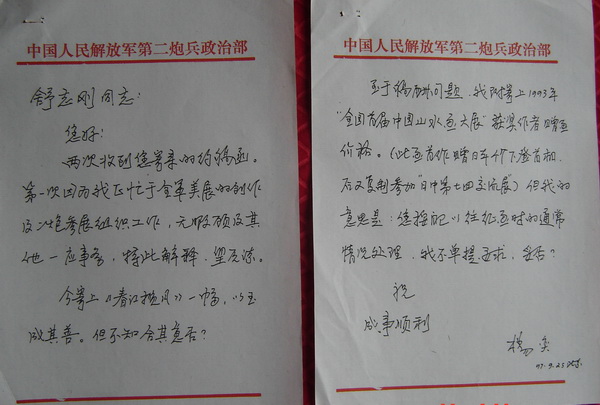 中国人民解放军第二炮兵政治部
舒志刚同志：
您好：
两次收到您寄来的约稿函。
第一次因为我正忙于全军美展的创作
及二炮参展组织工作，无暇顾及其
他一应事务，特此解释，望反谅。
今寄上《春江摇风》一幅，以玉
成其善。但不知合其意否？
中国人民解放军第二炮兵政治部
至于稿酬问题，我附寄上1993年
"全国首届中国山水画大展"获奖作者赠画
价格。（此画首作赠日本竹下登首相，
后又复制参加"日中第十四交流展）但我的
意思是：您按配以往征画时的通常
情况处理，我不单提要求，妥否？
祝
成事顺利
杨奕
97.9.25